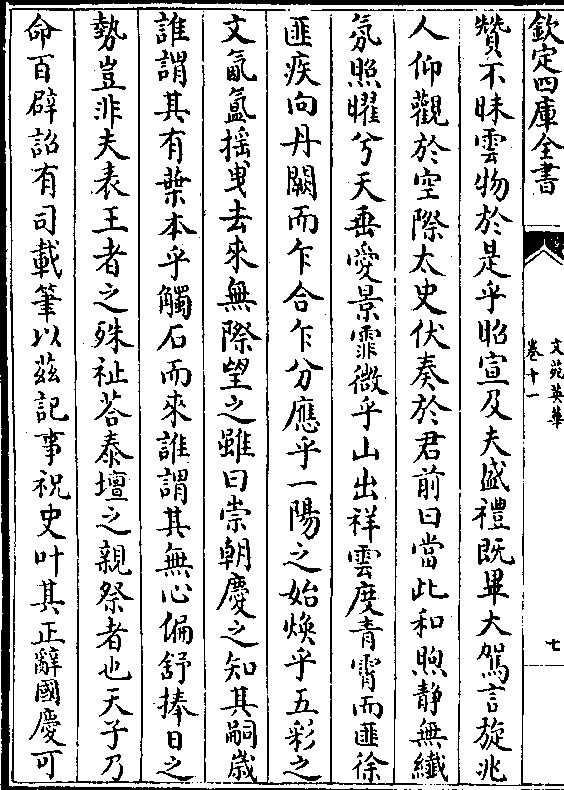 欽定四庫全書
文苑英華
卷十一
七
贊不昧雲物於是乎昭宣及夫盛禮既畢大駕言旋兆
人仰觀於空際太史伏奏於君前曰當此和煦静無纎
氛照曜兮天垂愛景霏微乎山出祥雲度青霄而匪徐
匪疾向丹闕而乍合乍分應乎一陽之始煥乎五彩之
文氤氲揺曳去來無際望之雖曰崇朝慶之知其嗣歳
誰謂其有蘂本乎觸石而來誰謂其無心偏舒捧日之
勢豈非夫表王者之殊祉荅泰壇之親祭者也天子乃
命百辟詔有司載筆以兹記事祝史叶其正辭國慶可